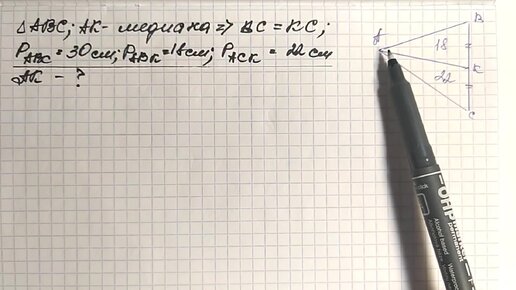 △ABC; AK - медиана => BC = KC;
P ABC = 30 см; P ABK = 18 см; P ACK = 22 см
AK - ?
A
B
18
K
22
C
OHP
permanent
Alcohol based
Waterproof